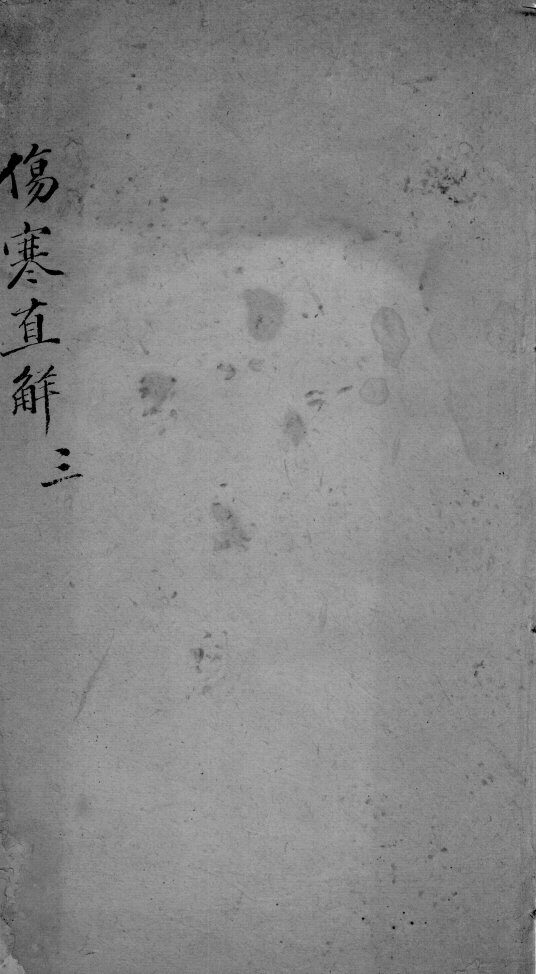 傷寒直觧
三